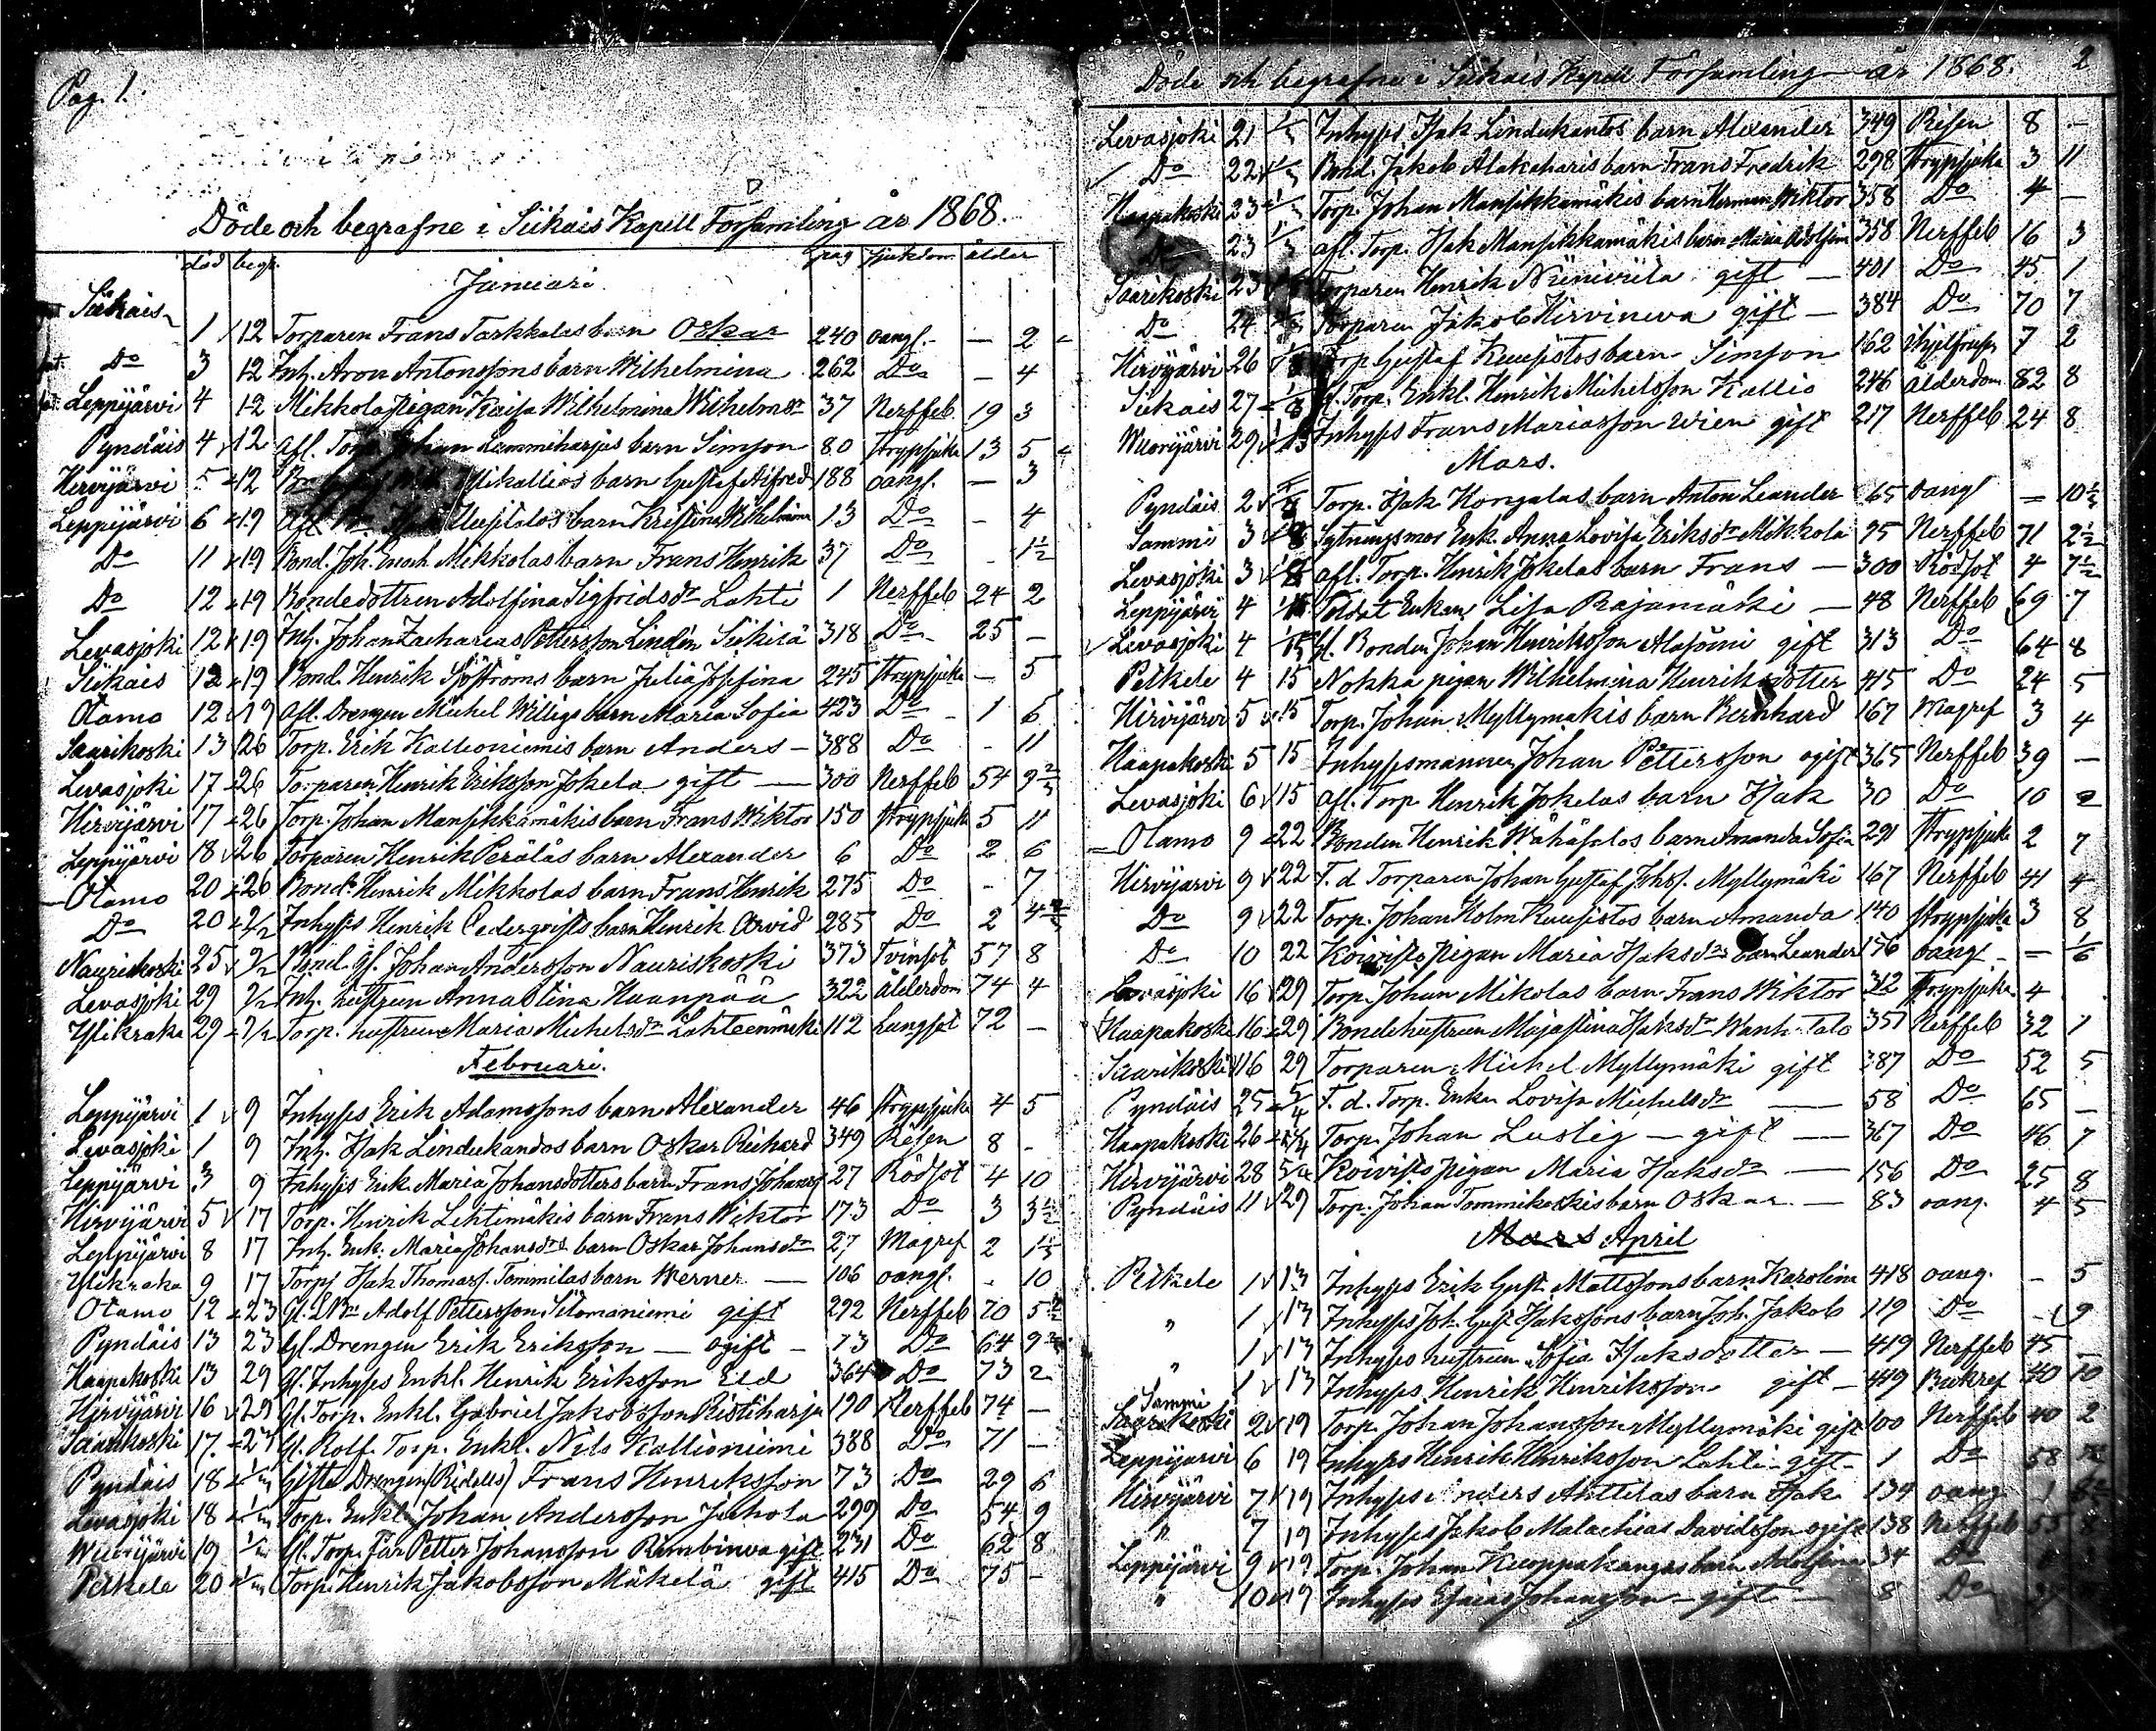 Pag. 1.
Döde och begrafne i Siikais Kapell Församling år 1868.
död begr. pag sjukdom ålder
Januari
Siikais 1 12 Torparen Frans Tarkkalas barn Oskar 240 oangf. — 2
Do 3 12 Inh. Aron Antonssons barn Wilhelmina 262 Do — 4
Leppijärvi 4 12 Mikkola pigan Kaisa Wilhelmina Wilhelmsdr 37 Nerffeb 19 3
Pyndäis 4 12 afl. Torp. Johan Lamminharjus barn Simson 80 Strypsjuka 13 5
Hirvijärvi 5 12 barn Gustaf Alfred 188 oangf. — 3
Leppijärvi 6 19 afl. barn Kristina Wilhelmina 13 Do - 4
Do 11 19 Bond. Joh. Enoch Mikkolas barn Frans Henrik 37 Do - 1½
Do 12 19 Bondedottren Adolfina Sigfridsdr Lahti 1 Nerffeb 24 2
Levasjoki 12 19 Inh. Johan Zacharias Pettersson Lindén Siikilä 318 Do 25 —
Siikais 12 19 Bond. Henrik Sjöströms barn Julia Josefina 245 Strypsjuka — 5
Otamo 12 19 afl. Drengen Michel Willigs barn Maria Sofia 423 Do 1 6
Saarikoski 13 26 Torp. Erik Kallioniemis barn Anders — 388 Do - 11
Levasjoki 17 26 Torparen Henrik Eriksson Jokela gift — 300 Nerffeb 54 9⅔
Hirvijärvi 17 26 Torp. Johan Mansikkamäkis barn Frans Wiktor 150 Strypsjuk 5 11
Leppijärvi 18 26 Torparen Henrik Peräläs barn Alexander 6 Do 2 6
Otamo 20 26 Bond. Henrik Mikkolas barn Frans Henrik 275 Do - 7
Do 20 2/2 Inhyses Henrik Cederqvists barn Henrik Arvid 285 Do 2
Nauriskoski 25 2/2 Bond. Gl. Johan Andersson Nauriskoski 373 Tvinsot 57 8
Levasjoki 29 2/2 Inh. hustrun Anna Stina Haanpää 322 ålderdom 74 4
Ylikraka 29 2/2 Torp. hustrun Maria Michelsdr Lähteenmäki 112 Lungsot 72 —
Februari.
Leppijärvi 1 9 Inhyses Erik Adamssons barn Alexander 46 Strypsjuka 4 5
Levasjoki 1 9 Inh. Isak Lindukandos barn Oskar Richard 349 Risen 8 -
Leppijärvi 3 9 Inhyses Enk. Maria Johansdotters barn Frans Johansf 27 Rödsot 4 10
Hirvijärvi 5 17 Torp. Henrik Lehtimäkis barn Frans Wiktor 173 Do 3 3½
Leppijärvi 8 17 Inh. Enk. Maria Johansdrs barn Oskar Johansdr 27 Magref 2
Ylikraka 9 17 Torp. Isak Thomass. Tommilas barn Werner — 106 oangf. - 10
Otamo 12 23 Adolf Pettersson Silomäniemi gift 292 Nerffeb 70
Pyndäis 13 23 Gl. Drengen Erik Eriksson — ogift — 73 Do 64
Haapakoski 13 29 Gl. Inhyses Enkl. Henrik Eriksson Eld 364 Do 73 2
Hirvijärvi 16 29 Gl. Torp. Enkl. Gabriel Jakobsson Ristiharju 190 Nerffeb 74 —
Saarikoski 17 Gl. Rolf. Torp. Enkl. Nils Kallioniemi 388 Do 71 —
Pyndäis 18 Gifte Drengen (Ridells) Frans Henriksson 73 Do 29 6
Levasjoki 18 Torp. Enkl. Johan Andersson Juhola 299 Do 54 9
Wuorijärvi 19 Gl. Torp. Far Petter Johansson Rimbineva gift 231 Do 62 8
Peikela 20 Torp. Henrik Jakobsson Mäkelä gift 415 Do 75 -
Döde och begrafne i Siikais Kapell Församling år 1868. 2
Levasjoki 21 Inhyses Isak Lindukantos barn Alexander 349 Risen 8 —
Do 22 Bond. Jakob Alakaharis barn Frans Fredrik 298 Strypsjuka 3 11
Haapakoski 23 Torp. Johan Mansikkamäkis barn Herman Wiktor 358 Do 4 —
Do 23 afl. Torp. Isak Mansikkamäkis barn Maria Adolfina 358 Nerffeb 16 3
Saarikoski 23 Torparen Henrik Niinivirta gift — 401 Do 45 1
Do 24 Torparen Jakob Hirvineva gift — 384 Do 70 7
Hirvijärvi 26 Torp. Gustaf Kuusistos barn Simson 162 7 2
Siikais 27 Gl. Torp. Enkl. Henrik Michelsson Kallio 246 ålderdom 82 8
Wuorijärvi 29 Inhyses Frans Mariasson Wien gift 217 Nerffeb 24 8
Mars.
Pyndäis 2 Torp. Isak Kongalas barn Anton Leander 65 oangf — 10½
Sammi 3 8 Sytningsmor Enk. Anna Lovisa Eriksdr Mikkola 95 Nerffeb 71 2½
Levasjoki 3 8 afl. Torp. Henrik Jokelas barn Frans — 300 Rödsot 4 7½
Leppijärvi 4 15 Soldat Enkan Lisa Rajamäki — 48 Nerffeb 69 7
Levasjoki 4 15 Gl. Bonden Johan Henriksson Alasömi gift 313 Do 64 8
Peikele 4 15 Nokka pigan Wilhelmina Henriksdotter 415 Do 24 5
Hirvijärvi 5 15 Torp. Johan Myllymäkis barn Bernhard 167 Magref 3 4
Haapakoski 5 15 Inhysesmannen Johan Pettersson ogift 365 Nerffeb 39 —
Levasjoki 6 15 afl. Torp Henrik Jokelas barn Isak 30 Do 10 2
Otamo 9 22 Bonden Henrik Wähäsalos barn Amanda Sofia 291 Strypsjuka 2 7
Hirvijärvi 9 22 F. d Torparen Johan Gustaf Johss. Myllymäki 167 Nerffeb 41 4
Do 9 22 Torp. Johan Holm Kuusistos barn Amanda 140 Strypsjuka 3 8
Do 10 22 Koivisto pigan Maria Isaksdrs barn Leander 156 oangf — 1/6
Levasjoki 16 29 Torp. Johan Mikolas barn Frans Wiktor 312 Strypsjuka 4
Haapakoski 16 29 Bondehustrun Majastina Isaksdr Wanhatalo 351 Nerffeb 32 1
Saarikoski 16 29 Torparen Michel Myllymäki gift 387 Do 52 5
Pyndäis 25 5/4 F. d. Torp. Enkan Lovisa Michelsdr — 58 Do 65 —
Haapakoski 26 Torp. Johan Lustig — gift — 367 Do 46 7
Hirvijärvi 28 5/4 Koivisto pigan Maria Isaksdr — 156 Do 25 8
Pyndäis 11 29 Torp. Johan Tommikoskis barn Oskar — 83 oang. 4 5
Mars April
Peikele 1 13 Inhyses Erik Gust. Mattssons barn Karolina 418 oang. - 5
" 1 13 Inhyses Joh. Gust. Isakssons barn Joh. Jakob 119 Do - 9
" 1 13 Inhyses hustrun Sofia Isaksdotter — 419 Nerffeb 45 —
1 13 Inhyses Henrik Henriksson gift — 419 Bukref 40 10
Sammi
Saarikoski 2 19 Torp. Johan Johansson Myllymäki gift 100 Nerffeb 40 2
Leppijärvi 6 19 Inhyses Henrik Henriksson Lahti — gift — 1 Do 58
Hirvijärvi 7 19 Inhyses Anders Anttilas barn Isak 139 oang 1
" 7 19 Inhyses Jakob Malachias Davidsson ogift 138 Nerffeb
Leppijärvi 9 19 Torp. Johan Kuoppakangas barn Adolfina 34 Do
" 10 19 Inhyses Esaias Johansson — gift — 8 Do